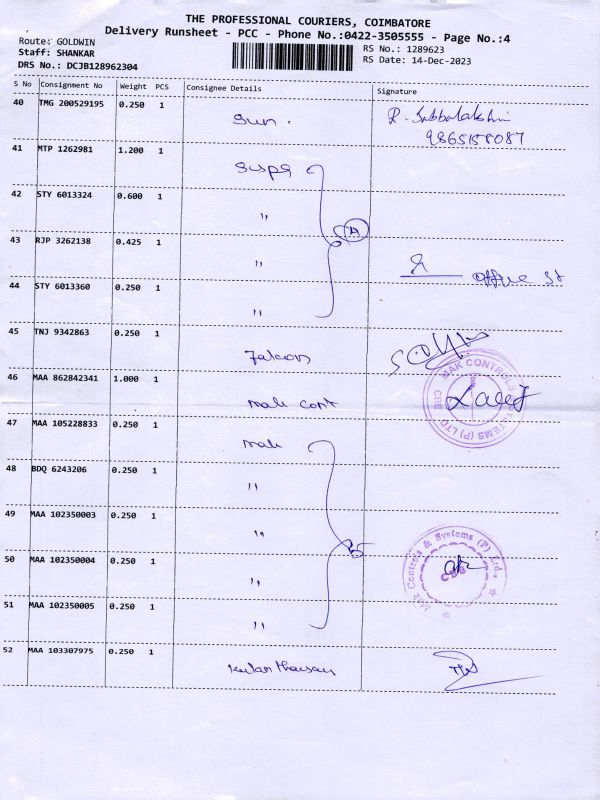 THE PROFESSIONAL COURIERS, COIMBATORE
Delivery Runsheet - PCC - Phone No.:0422-3505555 - Page No.:4
Route: GOLDWIN
Staff: SHANKAR
DRS No.: DCJB128962304
RS No.: 1289623
RS Date: 14-Dec-2023
S No Consignment No Weight PCS Consignee Details Signature
40 TMG 200529195 0.250 1 Sun. R. Subbalakshmi
9865158087
41 MTP 1262981 1.200 1
42 STY 6013324 0.600 1 "
43 RJP 3262138 0.425 1 "
office st
44 STY 6013360 0.250 1 "
45 TNJ 9342863 0.250 1 Falcon
46 MAA 862842341 1.000 1 Mak cont
MAK CONTROLS SYSTEMS (P) LTD CBE
47 MAA 105228833 0.250 1 Mak
48 BDQ 6243206 0.250 1 "
49 MAA 102350003 0.250 1 "
5
50 MAA 102350004 0.250 1 "
Mak Controls & Systems (P) Ltd., CBE
51 MAA 102350005 0.250 1 "
52 MAA 103307975 0.250 1